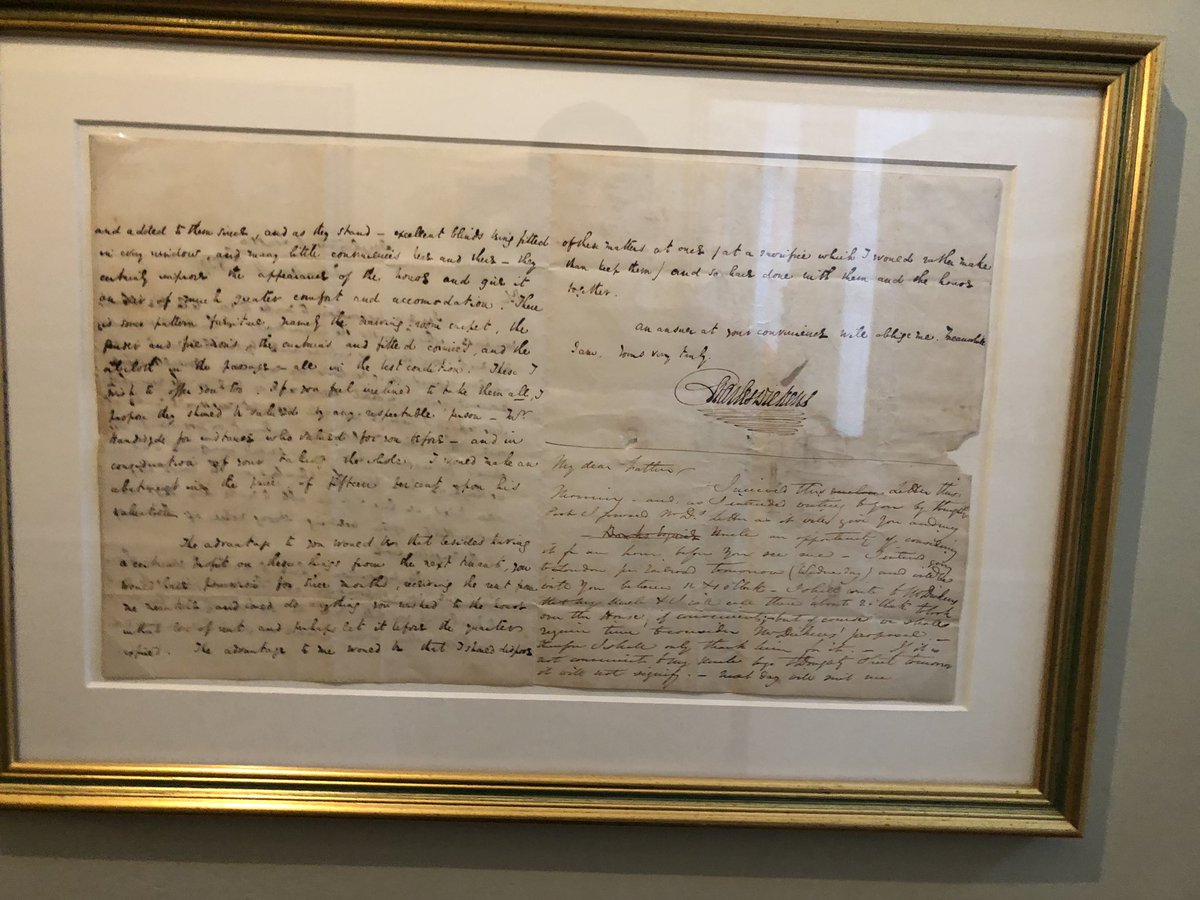 and added to them since, and as they stand – excellent blinds being fitted
in every window, and many little conveniences here and there – they
certainly improve the appearance of the house and give it
an air of much greater comfort and accomodation. There
is some pattern furniture, namely the drawing-room carpet, the
fender and fire irons, the curtains and fitted cornices, and the
oilcloth in the passage – all in the best condition. These I
wish to offer you too. If you feel inclined to take them all, I
propose they should be valued by any respectable person – Mr
for instance who valued for you before – and in
consideration of your taking the whole, I would make an
abatement in the price, of fifteen per cent upon his
valuation
The advantage to you would be that besides having
a certain profit on these things from the next tenant, you
would have possession for some months, receiving the rent from
me meanwhile, and could do anything you wished to the house
without loss of rent, and perhaps let it before the quarter
expired. The advantage to me would be that I should dispose
of these matters at once (at a sacrifice which I would rather make
than keep them) and so have done with them and the house
together.
An answer at your convenience will oblige me. Meanwhile
I am. Yours very truly.
Charles Dickens
My dear Father
I received this letter this
Morning – and, as I intended writing to you by tonight's
Post I forward Mr D's letter as it will give you and my
Uncle an opportunity of considering
it for an hour before you see me – I intend going
to London per Railroad tomorrow (Wednesday) and will be
with You between – I shall write to Mr Dickens
that my Uncle & I will call there about 2 o'clock to look
over the House, if convenient; but of course we shall
require time to consider Mr Dickens' proposal –
therefore I shall only thank him for it. – If it is
not convenient to my Uncle to go tomorrow
it will not signify. – next day will suit me